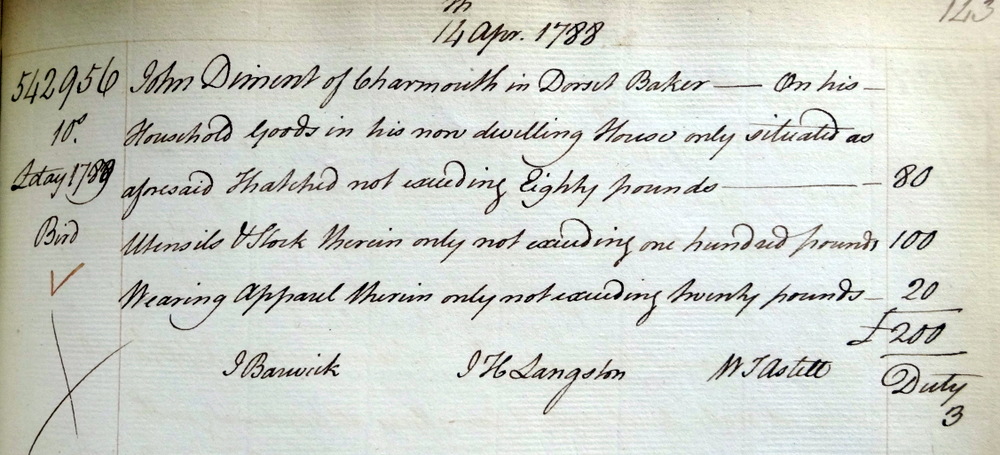 123
14 Apr. 1788
542956 John Diment of Charmouth in Dorset Baker — On his —
10s. Household Goods in his now dwelling House only situated as
Lday 1789 aforesaid Thatched not exceeding Eighty pounds — 80
Bird Utensils & Stock therein only not exceeding one hundred pounds 100
Wearing Apparel therein only not exceeding twenty pounds — 20
£200
J Barwick J H Langston W T Astell
Duty
3